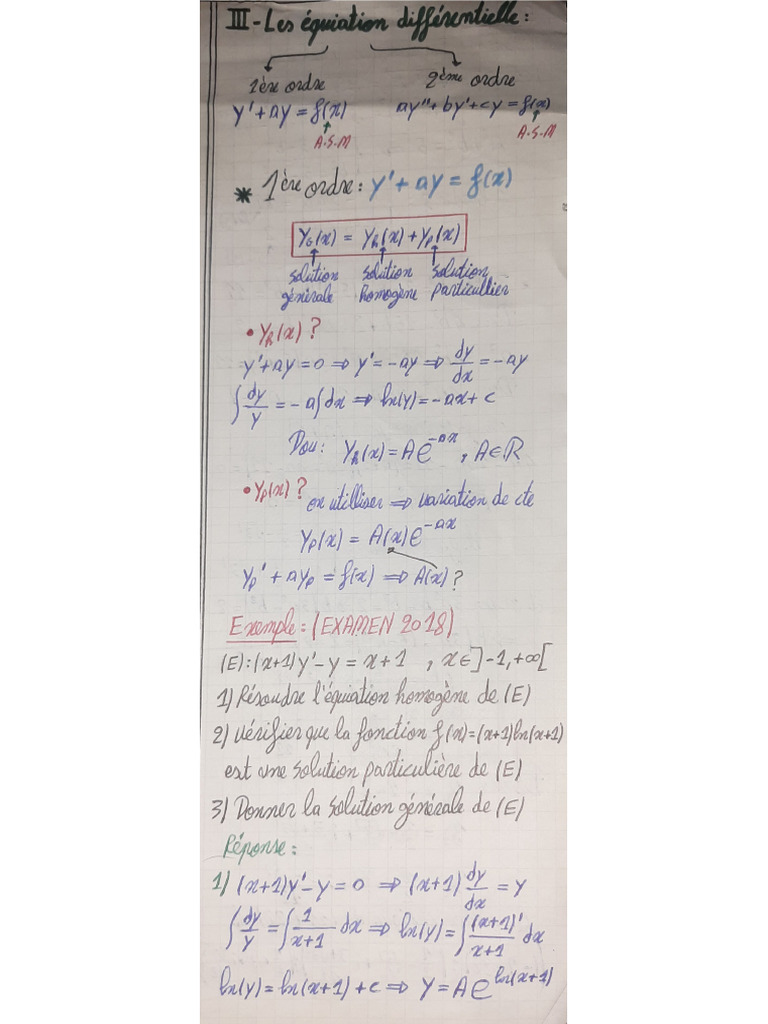 III - Les équiation différentielle :
1ère ordre 2ème ordre
y' + ay = f(x) ay'' + by' + cy = f(x)
A.S.M A.S.M
* 1ère ordre : y' + ay = f(x)
YG(x) = Yh(x) + Yp(x)
solution solution solution
générale homogène particullier
• Yh(x) ?
y' + ay = 0 ⇒ y' = -ay ⇒ dy/dx = -ay
∫ dy/y = -a∫dx ⇒ ln(y) = -ax + c
Dou : Yh(x) = Ae^-ax , A∈ℝ
• Yp(x) ?
on utilliser ⇒ variation de cte
Yp(x) = A(x)e^-ax
Yp' + aYp = f(x) ⇒ A(x) ?
Exemple : (EXAMEN 2018)
(E) : (x+1)y' - y = x+1 , x∈]-1,+∞[
1) Résoudre l'équiation homogène de (E)
2) Vérifier que la fonction f(x)=(x+1)ln(x+1)
est une solution particulière de (E)
3) Donner la solution générale de (E)
Réponse :
1) (x+1)y' - y = 0 ⇒ (x+1) dy/dx = y
∫ dy/y = ∫ 1/(x+1) dx ⇒ ln(y) = ∫ (x+1)'/(x+1) dx
ln(y) = ln(x+1) + c ⇒ y = Ae^ln(x+1)